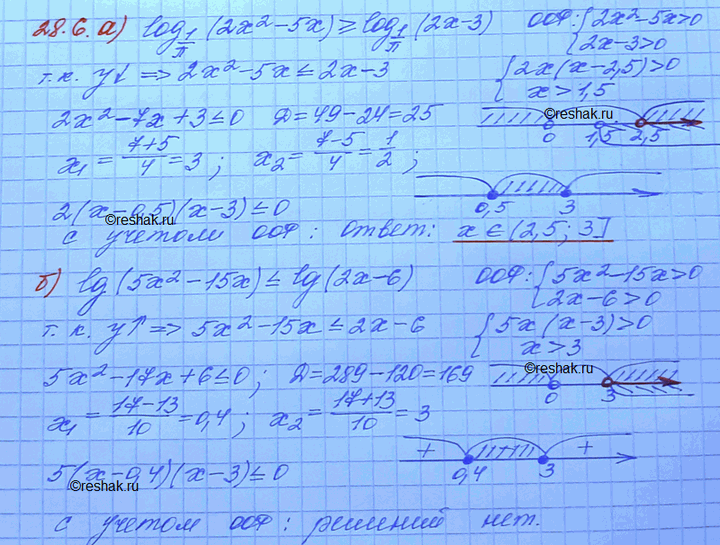 28.6. а) log_{1/π} (2x² - 5x) ≥ log_{1/π} (2x - 3) ООФ: {2x² - 5x > 0
{2x - 3 > 0
т.к. y↓ => 2x² - 5x ≤ 2x - 3 {2x(x - 2,5) > 0
{x > 1,5
2x² - 7x + 3 ≤ 0 D = 49 - 24 = 25
©reshak.ru
0 1,5 2,5
x₁ = (7+5)/4 = 3; x₂ = (7-5)/4 = 1/2;
2(x - 0,5)(x - 3) ≤ 0
0,5 3
©reshak.ru
с учетом ООФ: ответ: x ∈ (2,5; 3]
б) lg(5x² - 15x) ≤ lg(2x - 6) ООФ: {5x² - 15x > 0
{2x - 6 > 0
т.к. y↑ => 5x² - 15x ≤ 2x - 6 {5x(x - 3) > 0
{x > 3
5x² - 17x + 6 ≤ 0; D = 289 - 120 = 169
©reshak.ru
0 3
x₁ = (17-13)/10 = 0,4; x₂ = (17+13)/10 = 3
+ +
5(x - 0,4)(x - 3) ≤ 0
0,4 3
©reshak.ru
с учетом ООФ: решений нет.